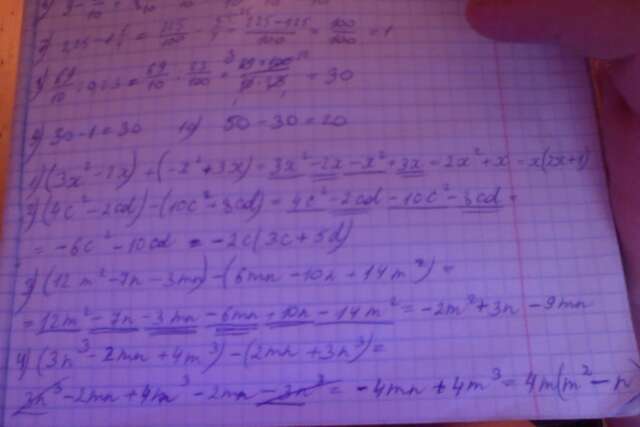 2) 2,25 - 1 1/4 = 225/100 - 5/4 = 225-125/100 = 100/100 = 1
3) 69/10 : 0,23 = 69/10 · 100 = 30
30 · 1 = 30 50 - 30 = 20
1) (3x² - 2x) + (-x² + 3x) = 3x² - 2x - x² + 3x = 2x² + x = x(2x+1)
2) (4c² - 2cd) - (10c² + 8cd) = 4c² - 2cd - 10c² - 8cd =
= -6c² - 10cd = -2c(3c + 5d)
3) (12m² - 7n - 3mn) - (6mn - 10n + 14m²) =
= 12m² - 7n - 3mn - 6mn + 10n - 14m² = -2m² + 3n - 9mn
4) (3n³ - 2mn + 4m³) - (2mn + 3n³) =
3n³ - 2mn + 4m³ - 2mn - 3n³ = -4mn + 4m³ = 4m(m² - n)